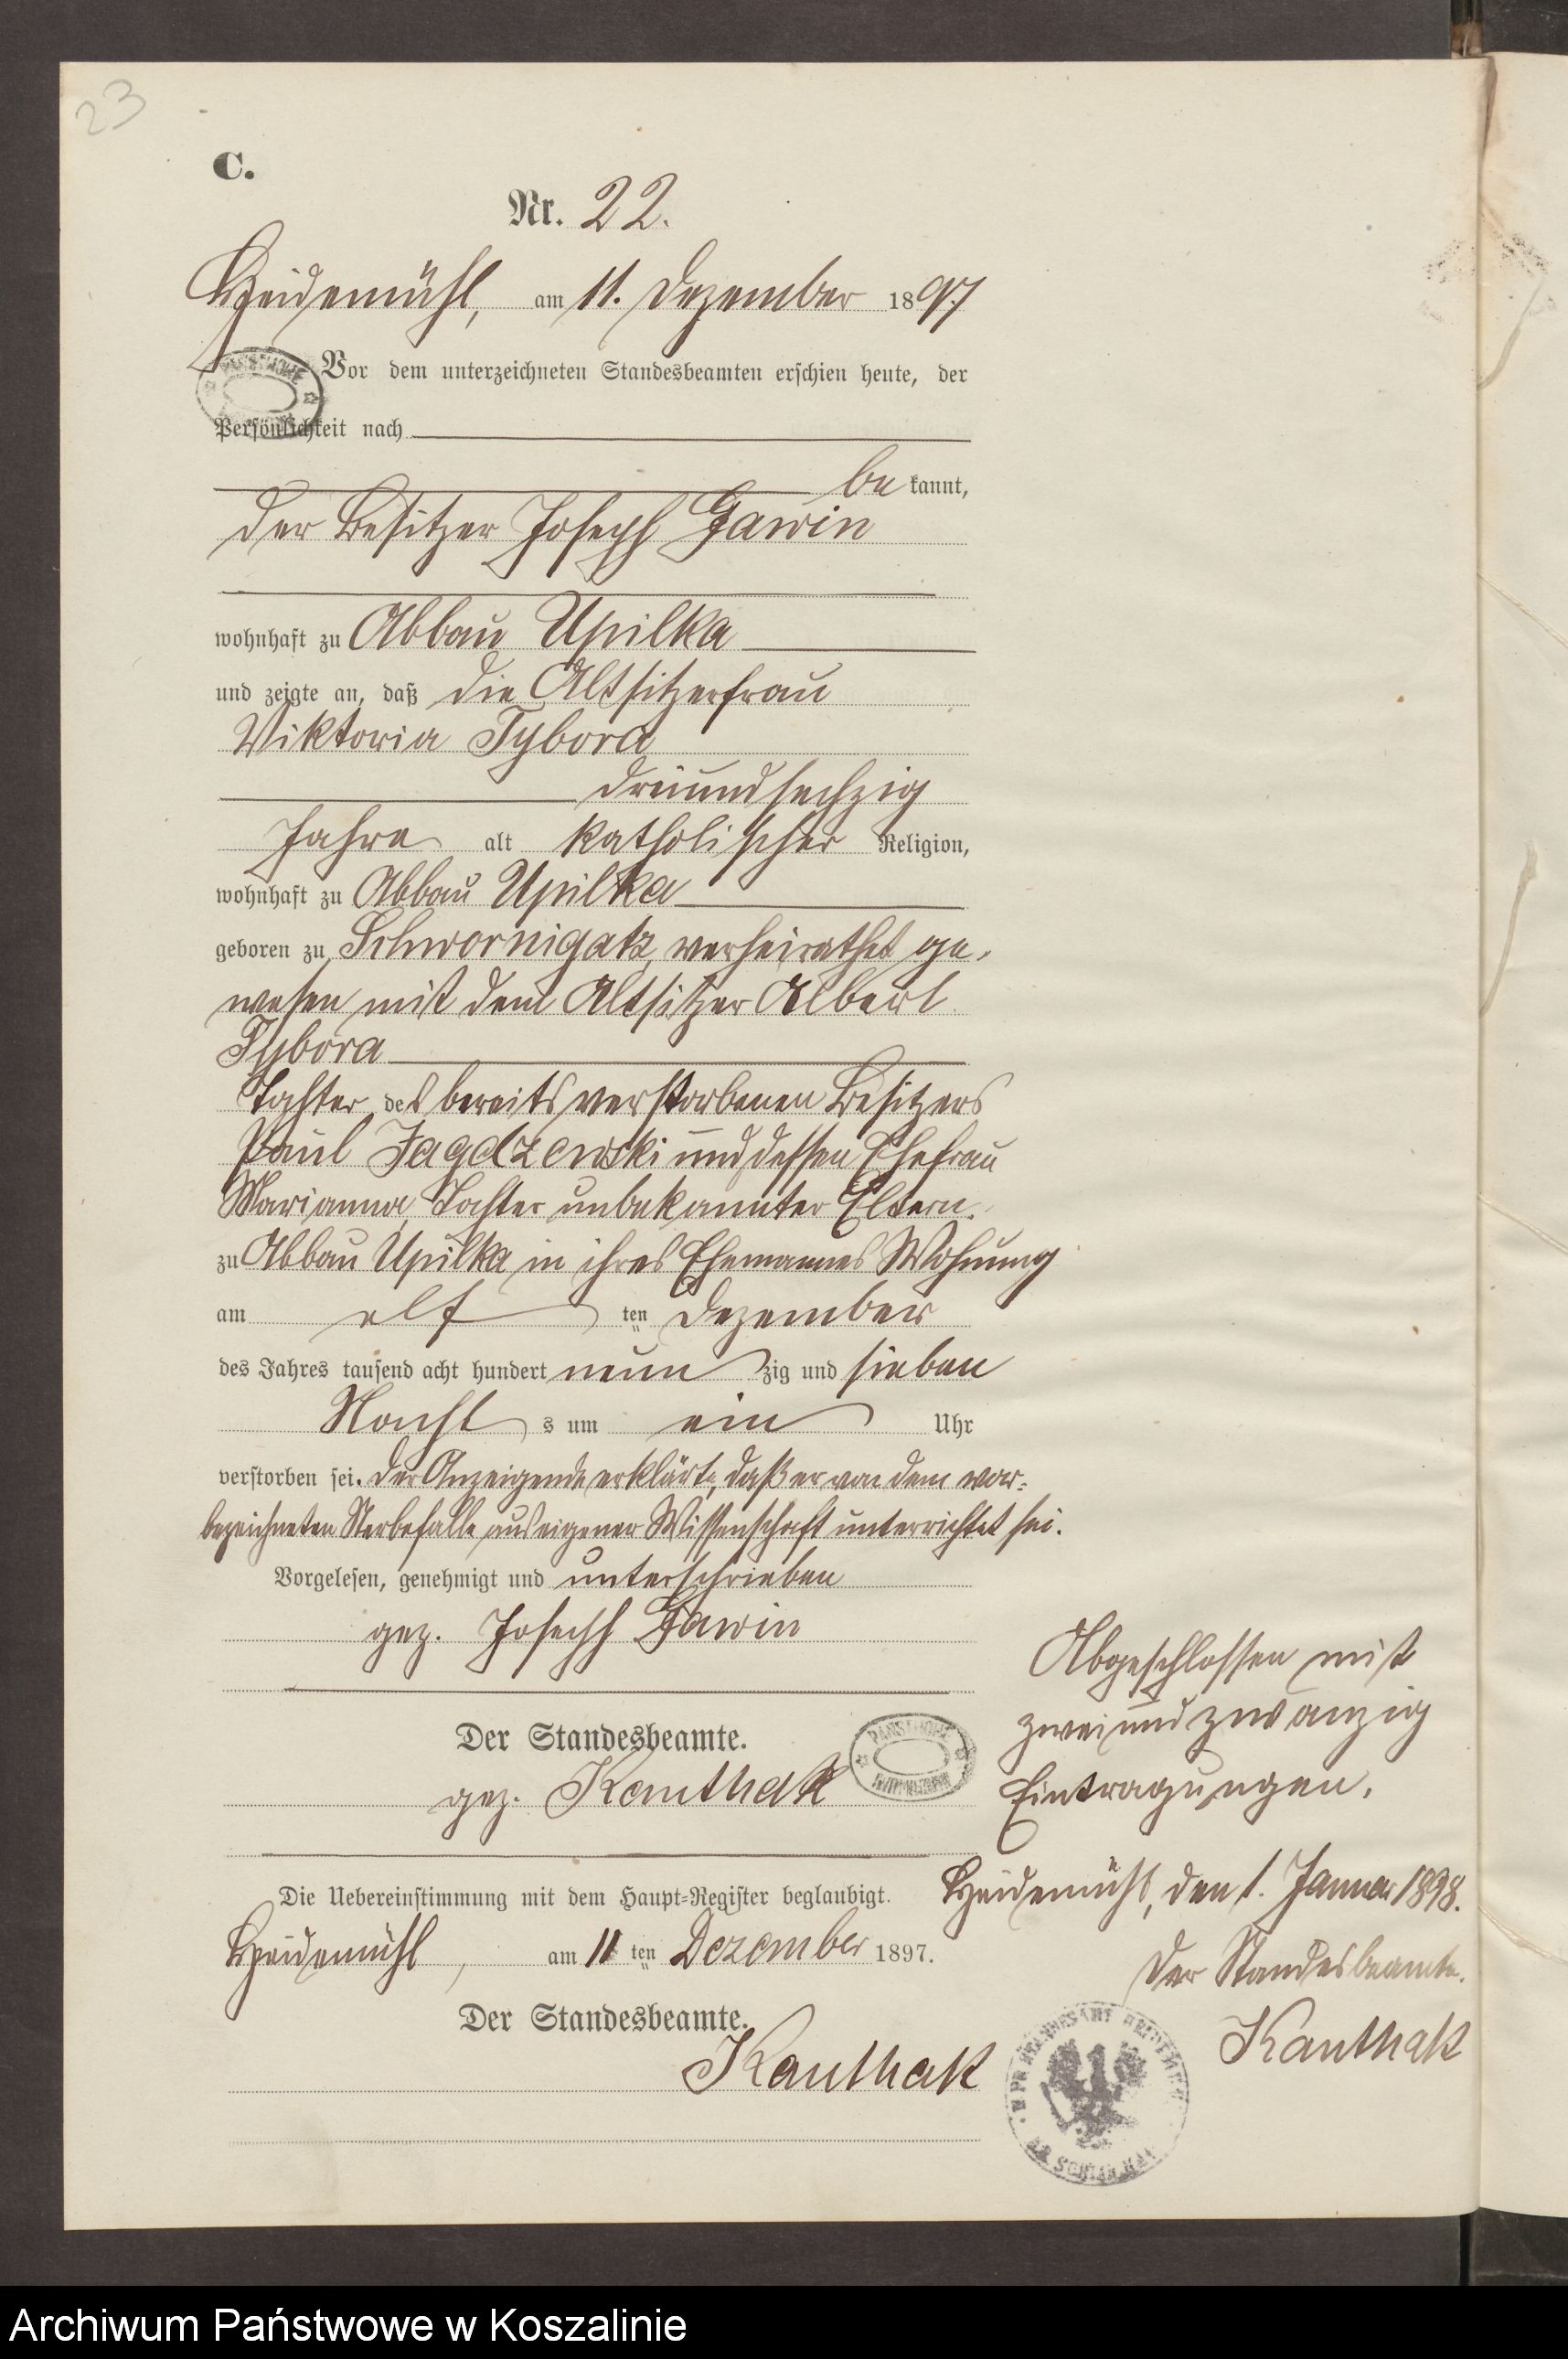 23
C.
Nr. 22.
Heidemühl, am 11. Dezember 1897
Vor dem unterzeichneten Standesbeamten erschien heute, der
Persönlichkeit nach
be kannt,
der Besitzer Joseph Gawin
wohnhaft zu Abbau Upilka
und zeigte an, daß die Altsitzerfrau
Viktoria Tybora
dreiundsechzig
Jahre alt katholischer Religion,
wohnhaft zu Abbau Upilka
geboren zu Schwornigatz, verheirathet ge-
wesen mit dem Altsitzer Albert
Tybora
Tochter des bereits verstorbenen Besitzers
Paul Jagdzewski und dessen Ehefrau
Marianna, Tochter unbekannter Eltern.
zu Abbau Upilka in ihres Ehemannes Wohnung
am elf ten Dezember
des Jahres tausend acht hundert neun zig und sieben
Nacht s um ein Uhr
verstorben sei. Der Anzeigende erklärte, daß er von dem vor-
bezeichneten Sterbefalle aus eigener Wissenschaft unterrichtet sei.
Vorgelesen, genehmigt und unterschrieben
gez. Joseph Gawin
Der Standesbeamte.
gez. Kauthak
Die Uebereinstimmung mit dem Haupt-Register beglaubigt.
Heidemühl, am 11 ten Dezember 1897.
Der Standesbeamte.
Kauthak
Abgeschlossen mit
zweiundzwanzig
Eintragungen.
Heidemühl, den 1. Januar 1898.
Der Standesbeamte.
Kauthak
Archiwum Państwowe w Koszalinie